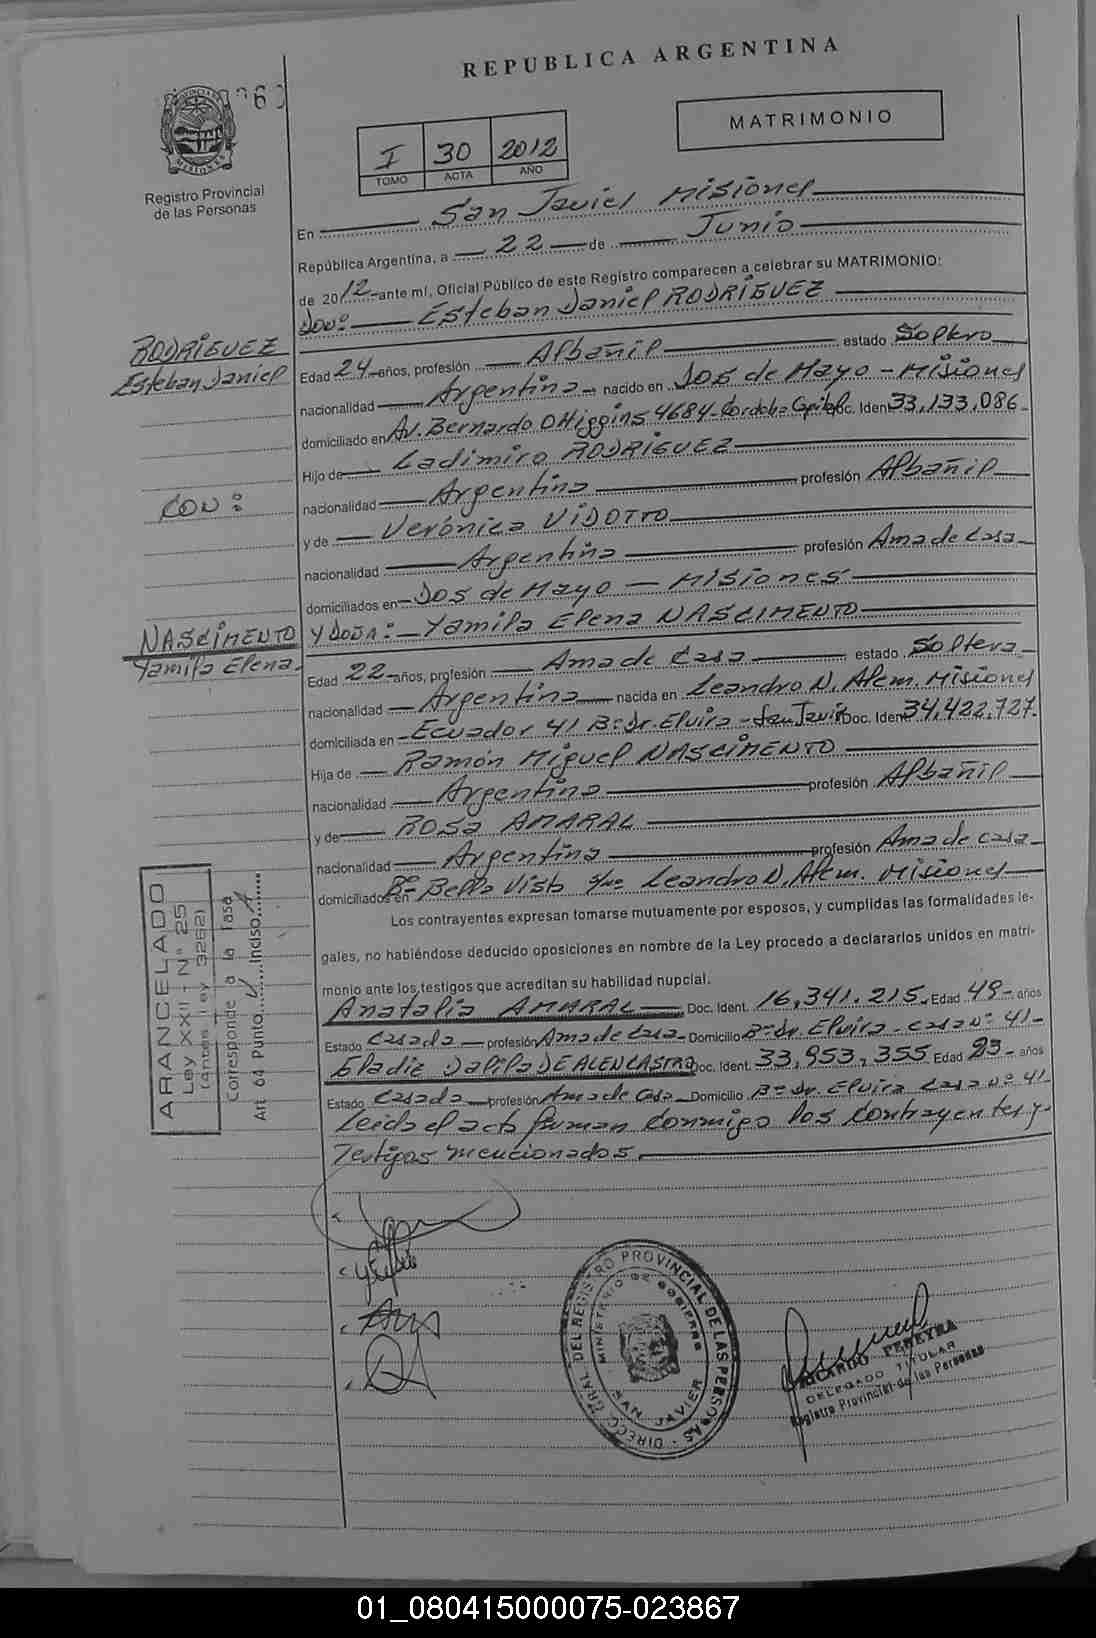 REPUBLICA ARGENTINA
MATRIMONIO
PROVINCIA DE MISIONES
Registro Provincial
de las Personas
I 30 2012
TOMO ACTA AÑO
En San Javier Misiones
República Argentina, a 22 de Junio
de 2012 ante mí, Oficial Público de este Registro comparecen a celebrar su MATRIMONIO:
DON: Esteban Daniel RODRÍGUEZ
RODRÍGUEZ
Esteban Daniel
Edad 24 años, profesión Albañil estado Soltero
nacionalidad Argentina nacido en Dos de Mayo - Misiones
domiciliado en Av. Bernardo OHiggins 4684 - Cordoba Capital Doc. Iden 33,133,086-
Hijo de Ladimiro RODRÍGUEZ
nacionalidad Argentina profesión Albañil
CON:
y de Verónica VIDOTTO
nacionalidad Argentina profesión Ama de Casa
domiciliados en Dos de Mayo - Misiones
NASCIMENTO
Yamila Elena
Y DOÑA: Yamila Elena NASCIMENTO
Edad 22 años, profesión Ama de Casa estado Soltera
nacionalidad Argentina nacida en Leandro N. Alem. Misiones
domiciliada en Ecuador 41 Bº Dr. Elvira - San Javier Doc. Iden 34,422,727-
Hija de Ramón Miguel NASCIMENTO
nacionalidad Argentina profesión Albañil
y de ROSA AMARAL
nacionalidad Argentina profesión Ama de casa
domiciliados en Bº Bella Vista s/nº Leandro N. Alem. Misiones
Los contrayentes expresan tomarse mutuamente por esposos, y cumplidas las formalidades le-
gales, no habiéndose deducido oposiciones en nombre de la Ley procedo a declararlos unidos en matri-
monio ante los testigos que acreditan su habilidad nupcial.
Anatalia AMARAL Doc. Ident. 16,341.215 Edad 49 años
Estado Casada profesión Ama de Casa Domicilio Bº Dr. Elvira - casa Nº 41-
Eladie Dalila DE ALENCASTRO Doc. Ident. 33,953,355 Edad 23 años
Estado Casada profesión Ama de Casa Domicilio Bº Dr. Elvira Casa Nº 41
Leida el acta firman conmigo los contrayentes y
Testigos mencionados.
ARANCELADO
Ley XXII - Nº 25
(antes ley 3262)
Corresponde a la Tasa
Art 64 Punto Inciso
DIRECC. GRAL. DEL REGISTRO PROVINCIAL DE LAS PERSONAS
MINISTERIO DE GOBIERNO
SAN JAVIER
RICARDO PEREYRA
DELEGADO TITULAR
Registro Provincial de las Personas
01_080415000075-023867